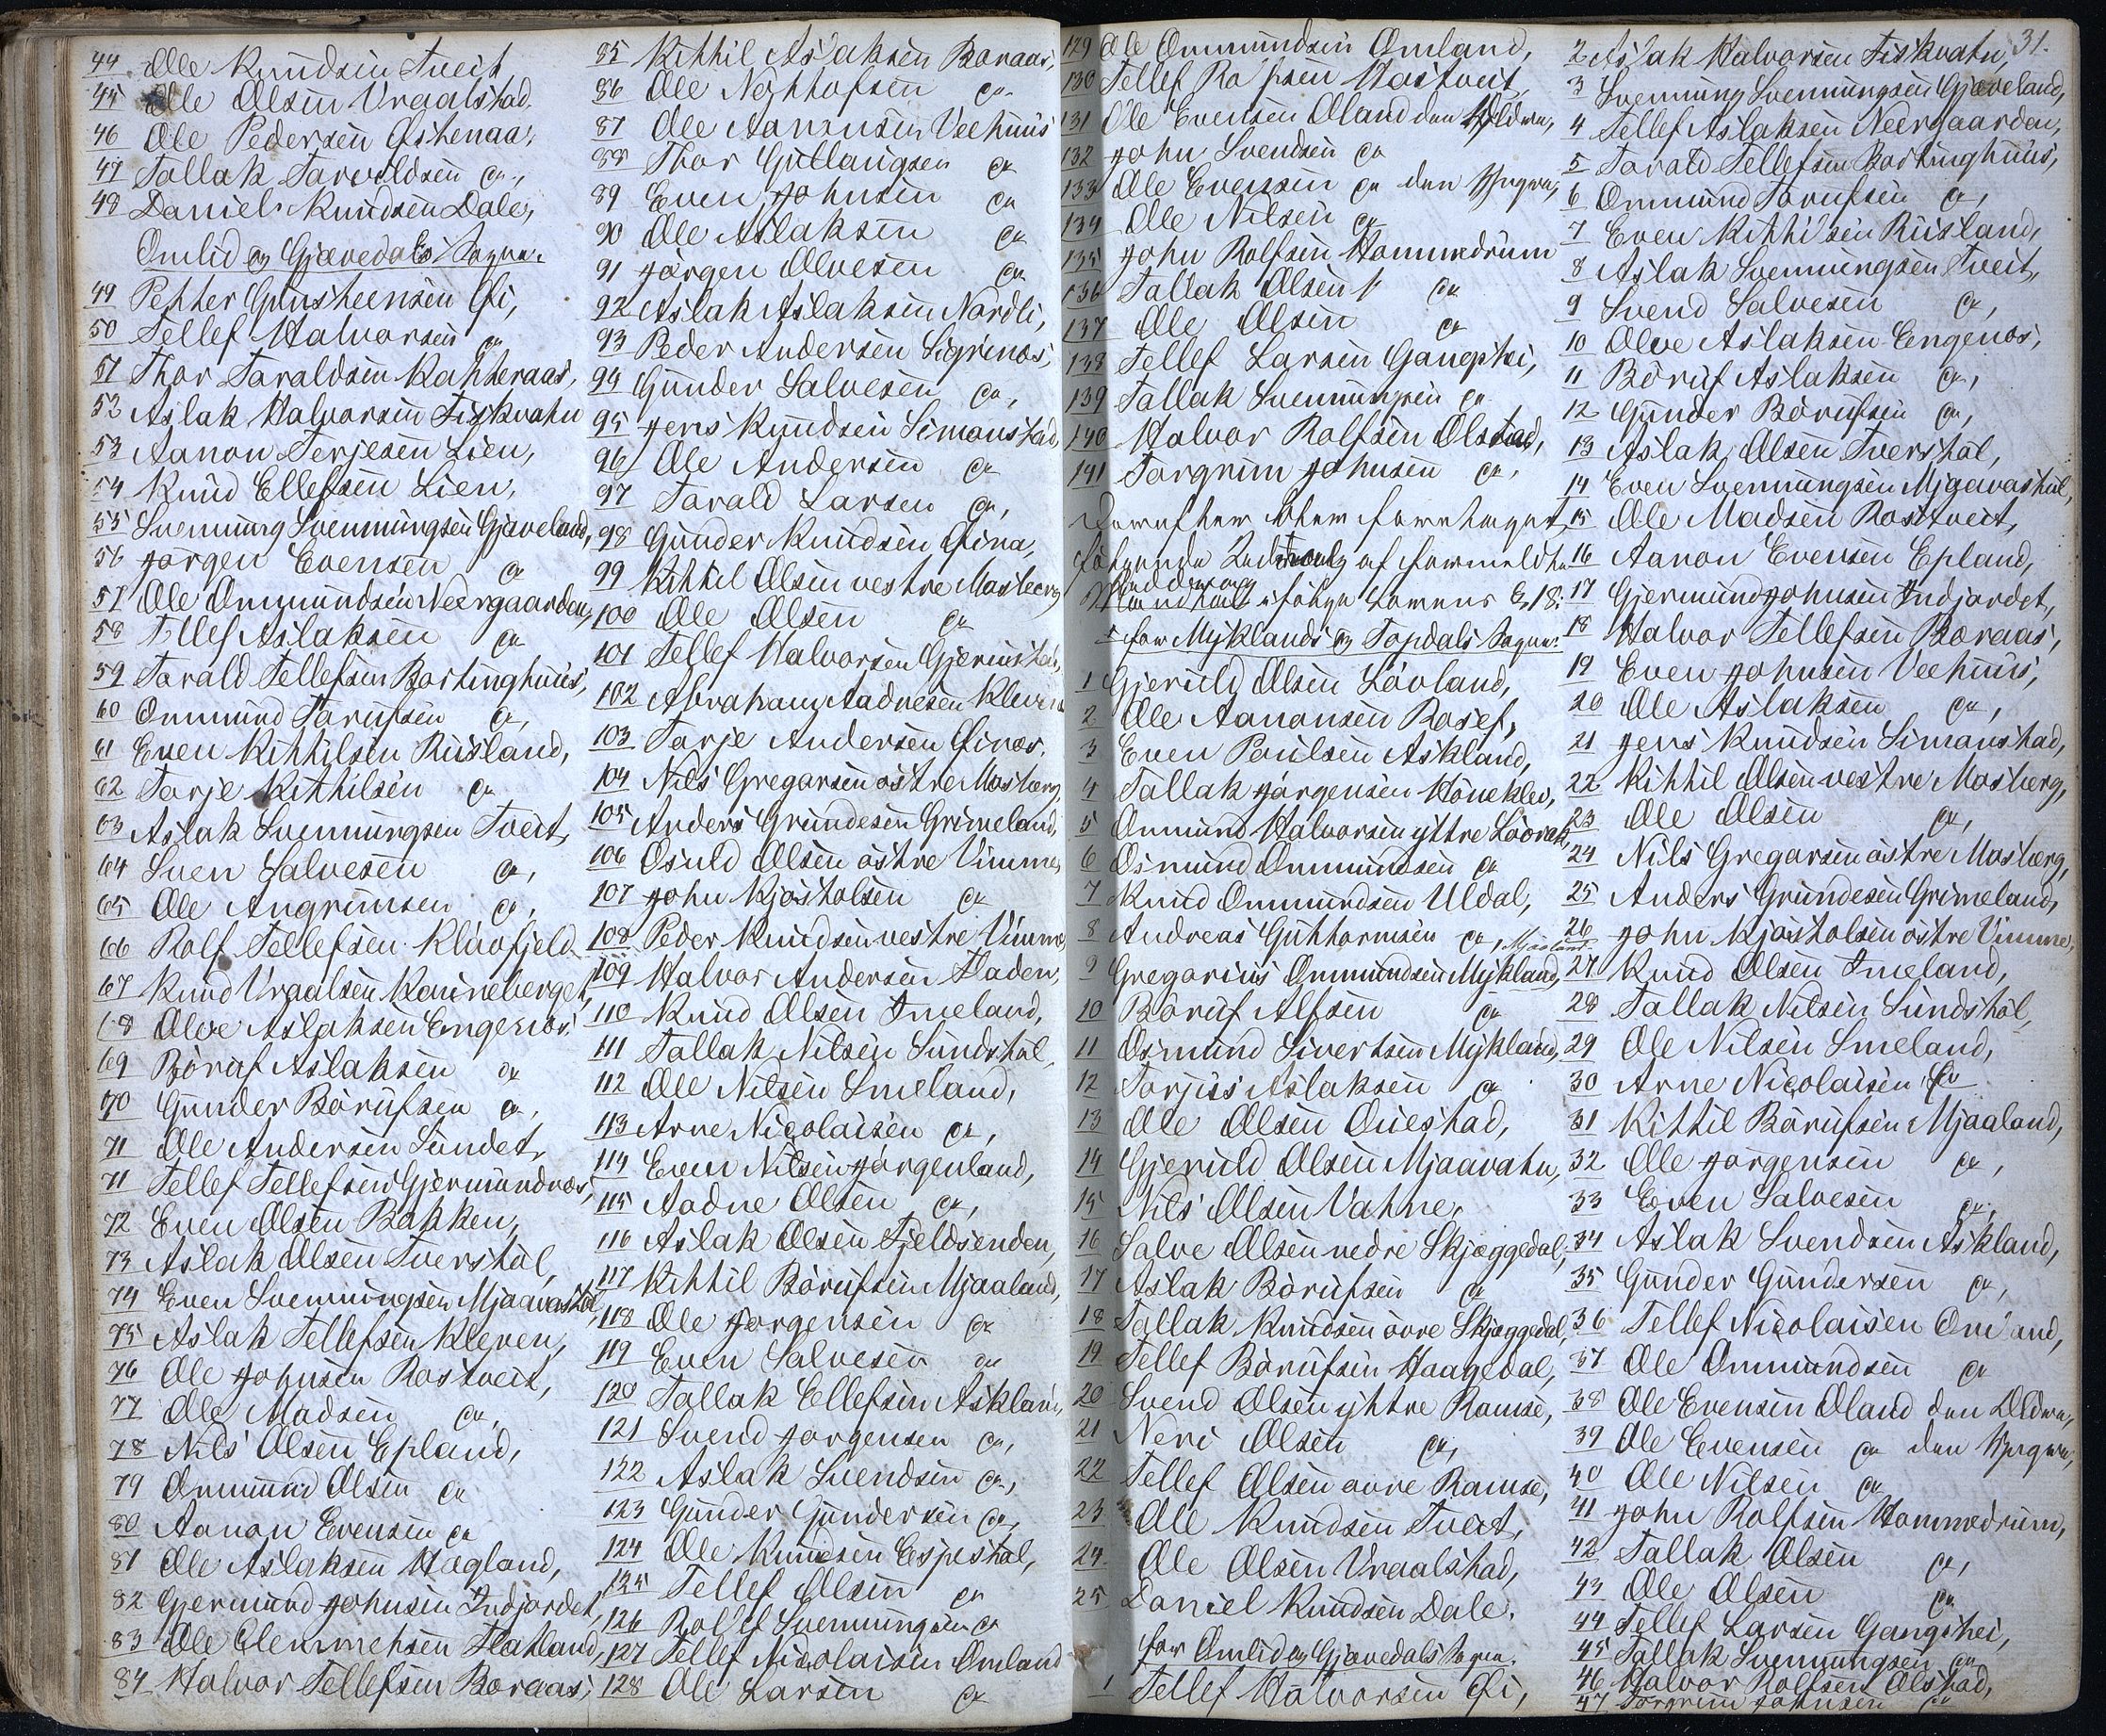 44 Ole Knudsen Tveit
45 Ole Olsen Vraalstad.
46 Ole Pedersen Østenaa,
47 Tallak Tarvoldsen do.,
48 Daniel Knudsen Dale,
Omlid og Gjævedals Sogne.
49 Petter Gunsteensen Øi,
50 Tellef Halvorsen do
51 Thor Taraldsen Katteraas,
52 Aslak Halvorsen Fiskvatn
53 Aanon Terjesen Lien,
54 Knud Ellefsen Lien,
55 Svennung Svennungsen Gjæveland,
56 Jørgen Evensen do
57 Ole Ommundsen Neergaarden,
58 Tellef Aslaksen do
59 Tarald Tellefsen Børtinghuus,
60 Ommund Børufsen do,
61 Even Kittilsen Risland,
62 Tarje Kittilsen do
63 Aslak Svennungsen Tveit,
64 Sven Salvesen do,
65 Ole Angrimsen do,
66 Rolf Tellefsen Kløvfjeld
67 Knud Vraalsen Ranneberget,
68 Olve Aslaksen Engenæs,
69 Børuf Aslaksen do
70 Gunder Børufsen do,
71 Ole Andersen Sundet,
71 Tellef Tellefsen Gjermundnæs,
72 Even Olsen Bakken,
73 Aslak Olsen Tverstøl,
74 Even Svennungsen Mjaavastøl,
75 Aslak Tellefsen Kleven,
76 Ole Johnsen Rostveit,
77 Ole Madsen do,
78 Nils Olsen Epland,
79 Ommund Olsen do
80 Aanon Evensen do
81 Ole Aslaksen Hægland,
82 Gjermund Johnsen Indjordet,
83 Ole Clemmetsen Flatland,
84 Halvor Tellefsen Boraas,
85 Kittil Aslaksen Boraas,
86 Ole do.
87 Ole Aanonsen Veehuus
88 Thor Gullaugsen do
89 Even Johnsen do
90 Ole Aslaksen do
91 Jørgen Olvesen do
92 Aslak Aslaksen Nordli,
93 Peder Andersen Sigrinæs,
94 Gunder Salvesen do,
95 Jens Knudsen Simonstad,
96 Ole Andersen do
97 Tarald Larsen do,
98 Gunder Knudsen Øina,
99 Kittil Olsen vestre Mosberg
100 Ole Olsen do
101 Tellef Halvorsen
102 Abraham Aadnesen Kleven
103 Tarje Andersen Øinæs.
104 Nils Gregarsen østre Mosberg,
105 Anders Grundesen Grimeland,
106 Osuld Olsen østre Vimme,
107 John Kjøstolsen do
108 Peder Knudsen vestre Vimme,
109 Halvor Andersen Fladen,
110 Knud Olsen Imeland,
111 Tallak Nilsen Sundstøl,
112 Ole Nilsen Smeland,
113 Arne Nicolaisen do,
114 Even Nilsen Jørgenland,
115 Aadne Olsen do,
116 Aslak Olsen Fjeldsenden,
117 Kittil Børufsen Mjaaland,
118 Ole Jørgensen do
119 Even Salvesen do
120 Tallak Ellefsen Askland,
121 Svend Jørgensen do,
122 Aslak Svendsen do,
123 Gunder Gundersen do,
124 Ole Knudsen Espestøl,
125 Tellef Olsen do
126 Rollef Svennungsen do
127 Tellef Nicolaisen Omland
128 Ole Larsen do
129 Ole Ommundsen Omland,
130 Tellef Rostveit,
131 Ole Evensen Øland den Ældre,
132 John Svendsen do
133 Ole Evensen do den Yngre,
134 Ole Nilsen do
135 John Rolfsen Hommedrum
136 Tallak Olsen do
137 Ole Olsen do
138 Tellef Larsen Gangshei,
139 Tallak Svennungsen do
140 Halvor Rolfsen Olstad,
141 Torgrim Johnsen do,
Derefter blev foretaget
følgende af formeldte
følge Lovens § 18:
for Myklands og Topdals Sogne:
1 Gjeruld Olsen Løvland,
2 Ole Aanonsen Rosef,
3 Even Poulsen Askland,
4 Tallak Jørgensen Høneklev,
5 Ommund Halvorsen yttre Løvrak,
6 Osmund Ommundsen do
7 Knud Ommundsen Uldal,
8 Andreas Guttormsen do, Mjaaland
9 Gregorius Ommundsen Mykland,
10 Børuf Alfsen do
11 Osmund Sivertsen Mykland,
12 Torjus Aslaksen do
13 Ole Olsen Ouestad,
14 Gjeruld Olsen Mjaavatn,
15 Nils Olsen Vatne,
16 Salve Olsen nedre Skjæggedal,
17 Aslak Børufsen do
18 Tallak Knudsen øvre Skjæggedal,
19 Tellef Børufsen Haagedal,
20 Svend Olsen yttre Ramse,
21 Neri Olsen do,
22 Tellef Olsen øvre Ramse,
23 Ole Knudsen Tveit,
24 Ole Olsen Vraalstad,
25 Daniel Knudsen Dale.
for Omlid og Gjævedals Sogne.
1 Tellef Halvorsen Øi,
31.
2 Aslak Halvorsen Fiskvatn,
3 Svennung Svennungsen Gjæveland,
4 Tellef Aslaksen Neergaarden,
5 Tarald Tellefsen Børtinghuus,
6 Ommund Børufsen do,
7 Even Kittilsen Risland,
8 Aslak Svennungsen Tveit,
9 Svend Salvesen do,
10 Olve Aslaksen Engenæs,
11 Børuf Aslaksen do,
12 Gunder Børufsen do,
13 Aslak Olsen Tverstøl,
14 Even Svennungsen Mjaavastøl,
15 Ole Madsen Rostveit,
16 Aanon Evensen Epland,
17 Gjermund Johnsen Indjordet,
18 Halvor Tellefsen Boraas,
19 Even Johnsen Veehuus,
20 Ole Aslaksen do,
21 Jens Knudsen Simonstad,
22 Kittil Olsen vestre Mosberg,
23 Ole Olsen do,
24 Nils Gregarsen østre Mosberg,
25 Anders Grundesen Grimeland,
26 John Kjøstolsen østre Vimme,
27 Knud Olsen Imeland,
28 Tallak Nilsen Sundstøl,
29 Ole Nilsen Smeland,
30 Arne Nicolaisen do
31 Kittil Børufsen Mjaaland,
32 Ole Jørgensen do,
33 Even Salvesen do,
34 Aslak Svendsen Askland,
35 Gunder Gundersen do,
36 Tellef Nicolaisen Omland,
37 Ole Ommundsen do
38 Ole Evensen Øland den Ældre,
39 Ole Evensen do den Yngre,
40 Ole Nilsen do
41 John Rolfsen Hommedrum,
42 Tallak Olsen do,
43 Ole Olsen do
44 Tellef Larsen Gangshei,
45 Tallak Svennungsen do
46 Halvor Rolfsen Olstad,
47 Torgrim Johnsen do